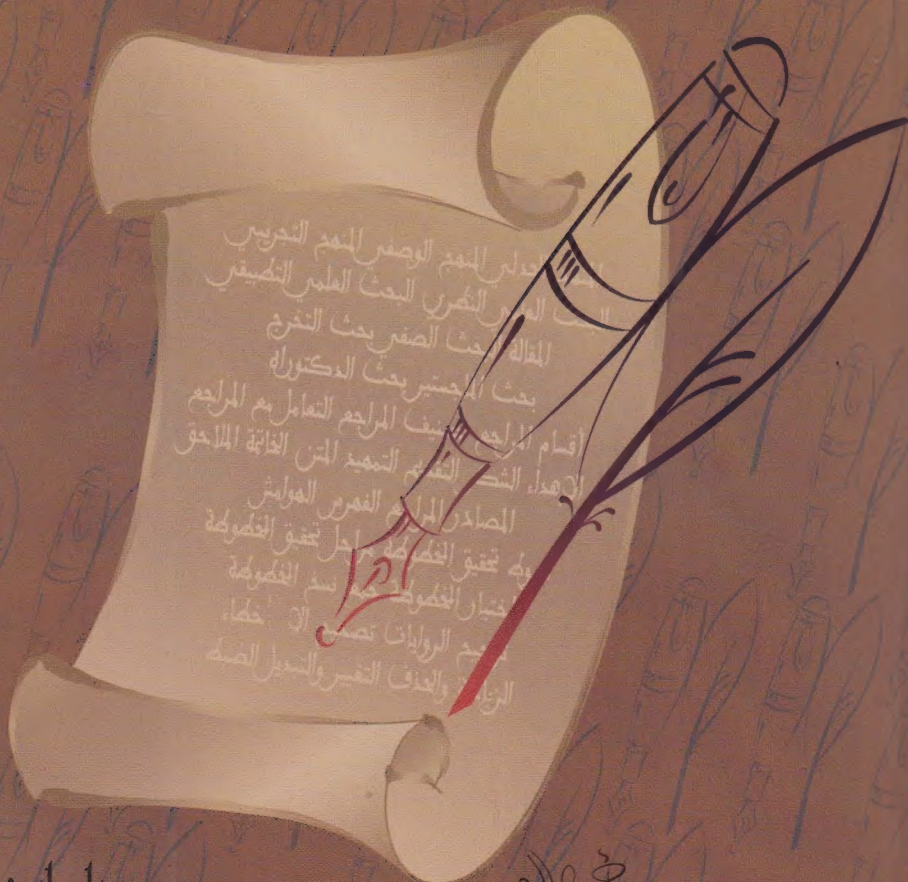 الجدلي المنهج الوصفي المنهج التجريبي
البحث العلمي النظري البحث العلمي التطبيقي
المقالة البحث الصفي بحث التخرج
بحث الماجستير بحث الدكتوراه
أقسام المراجع تصنيف المراجع التعامل مع المراجع
الإهداء الشكر التقديم التمهيد المتن الخاتمة الملاحق
المصادر المراجع الفهرس الهوامش
تحقيق المخطوطة مراحل تحقيق المخطوطة
اختيار المخطوطة جمع نسخ المخطوطة
الروايات تصحيح الأخطاء
الزيادة والحذف التغيير والتبديل الضبط